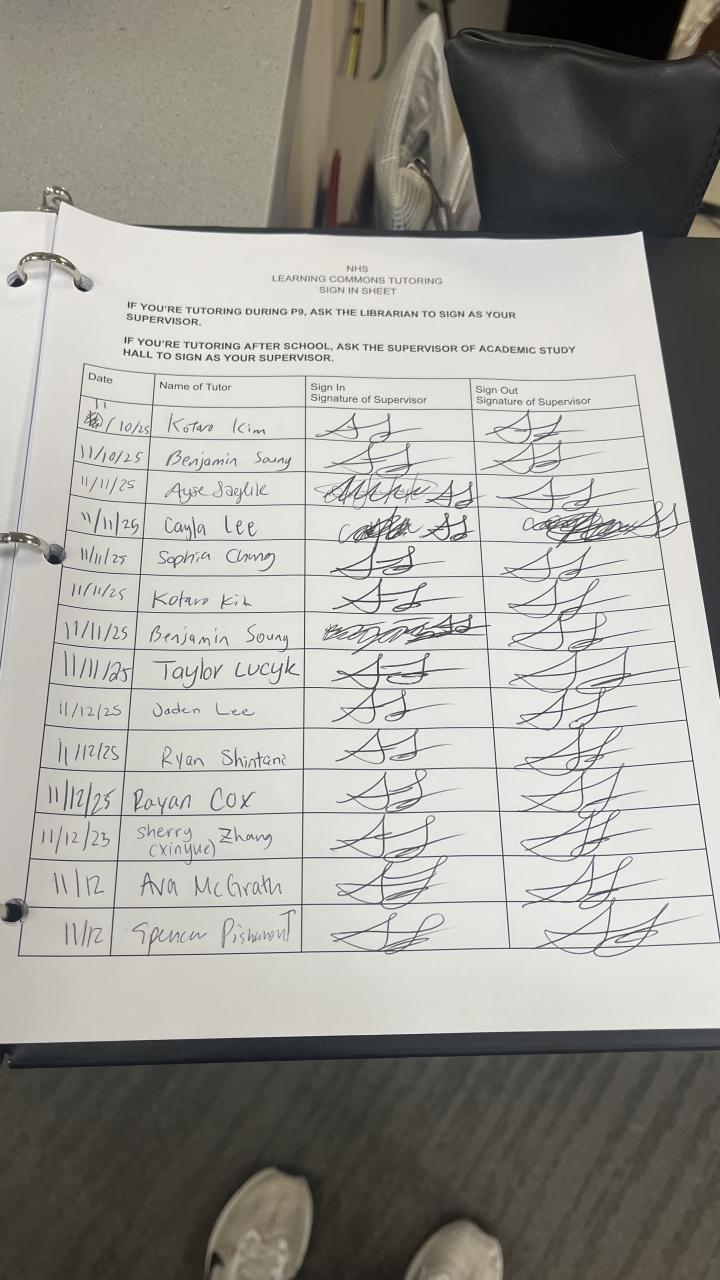 NHS
LEARNING COMMONS TUTORING
SIGN IN SHEET
IF YOU'RE TUTORING DURING P9, ASK THE LIBRARIAN TO SIGN AS YOUR
SUPERVISOR.
IF YOU'RE TUTORING AFTER SCHOOL, ASK THE SUPERVISOR OF ACADEMIC STUDY
HALL TO SIGN AS YOUR SUPERVISOR.
Date Name of Tutor Sign In Sign Out
Signature of Supervisor Signature of Supervisor
11/10/25 Kotaro Kim
11/10/25 Benjamin Soung
11/11/25 Ayse
11/11/25 Cayla Lee
11/11/25 Sophia Chung
11/11/25 Kotaro Kim
11/11/25 Benjamin Soung
11/11/25 Taylor Lucyk
11/12/25 Jaden Lee
11/12/25 Ryan Shintani
11/12/25 Rayan Cox
11/12/25 Sherry Zhang
(xinyue)
11/12 Ava McGrath
11/12 Spencer